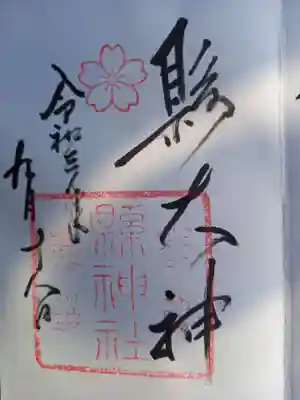 縣大神
令和三年
九月十八日
縣神社